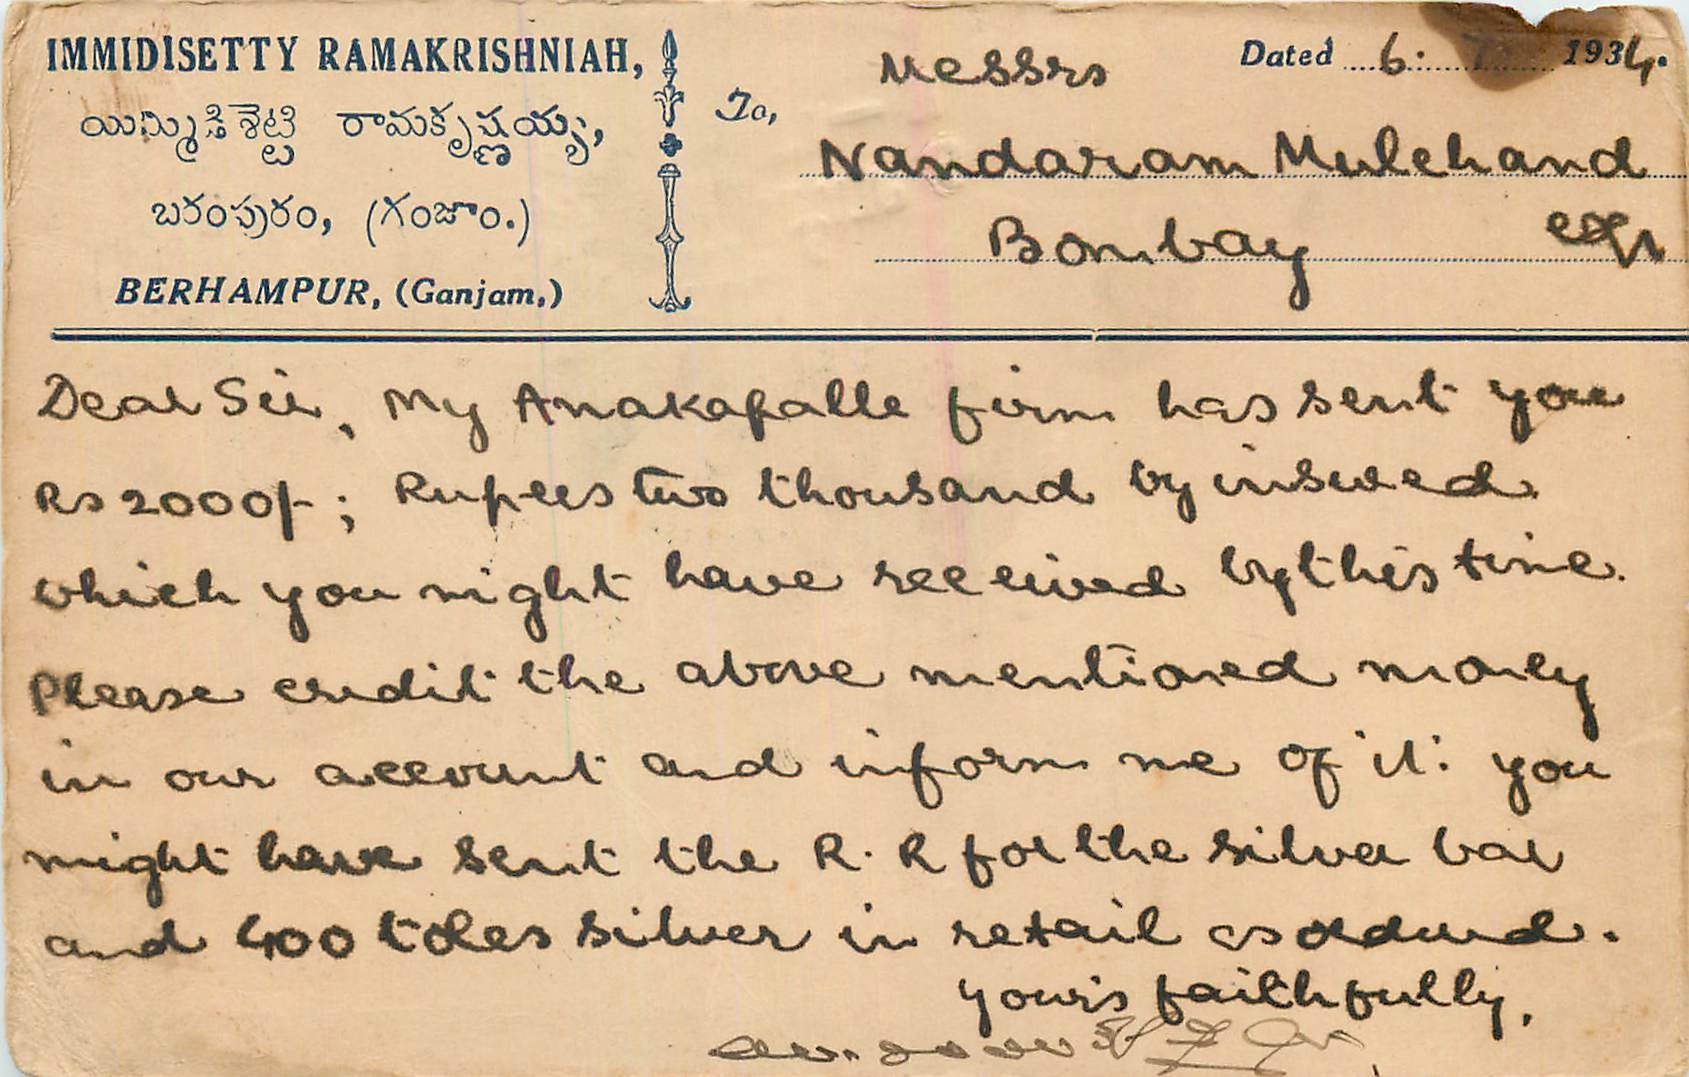 IMMIDISETTY RAMAKRISHNIAH,
యిమ్మిడిశెట్టి రామకృష్ణయ్య,
బరంపురం, (గంజాం.)
BERHAMPUR, (Ganjam.)
Dated 6. 7. 1934.
To,
Messrs
Nandaram Mulchand
Bombay
Dear Sir, My Anakapalle firm has sent you
Rs 2000/-; Rupees two thousand by insured
which you might have received by this time.
Please credit the above mentioned money
in our account and inform me of it. you
might have sent the R.R for the silver bar
and 400 toles silver in retail as ordered.
yours faithfully,